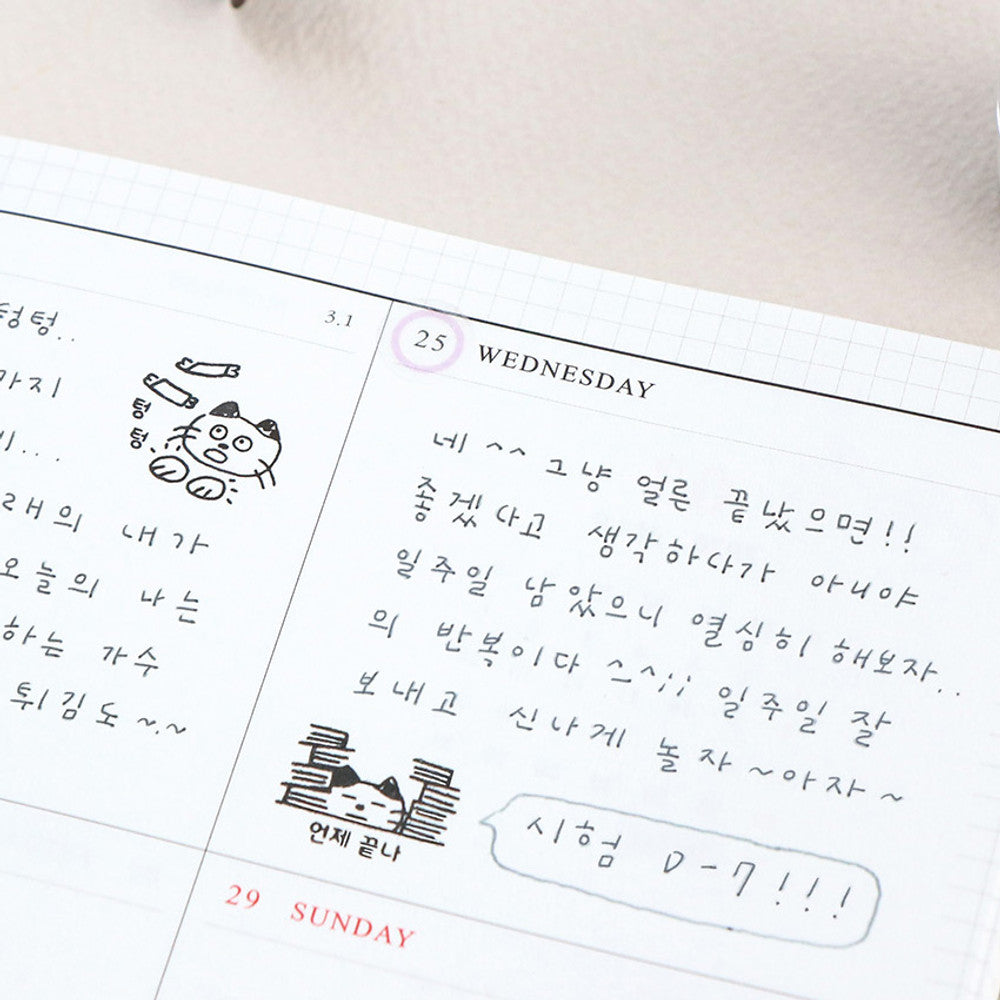 텅텅..
3.1
마지
텅
텅..
래의 내가
오늘의 나는
하는 가수
튀김도 ~.~
25 WEDNESDAY
네 ^^ 그냥 얼른 끝났으면!!
좋겠다고 생각하다가 아니야
일주일 남았으니 열심히 해보자..
의 반복이다 ^_^;; 일주일 잘
보내고 신나게 놀자 ~아자 ~
언제 끝나
시험 D-7!!!
29 SUNDAY